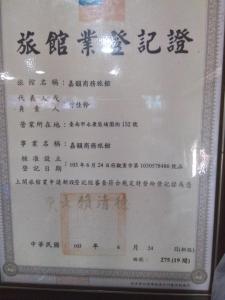 旅館業登記證
旅館名稱：嘉頤商務旅館
代表人或
負責人：
營業所在地：臺南市永康區埔園街132號
事業名稱：嘉頤商務旅館
核准設立
登記日期：103年6月24日府觀業字第1030578486號函
上開旅館業申請新設登記經審查符合規定財發給登記證為憑
賴清德
中華民國 103 年 6 月 24 日(新設)
編號：275(19間)